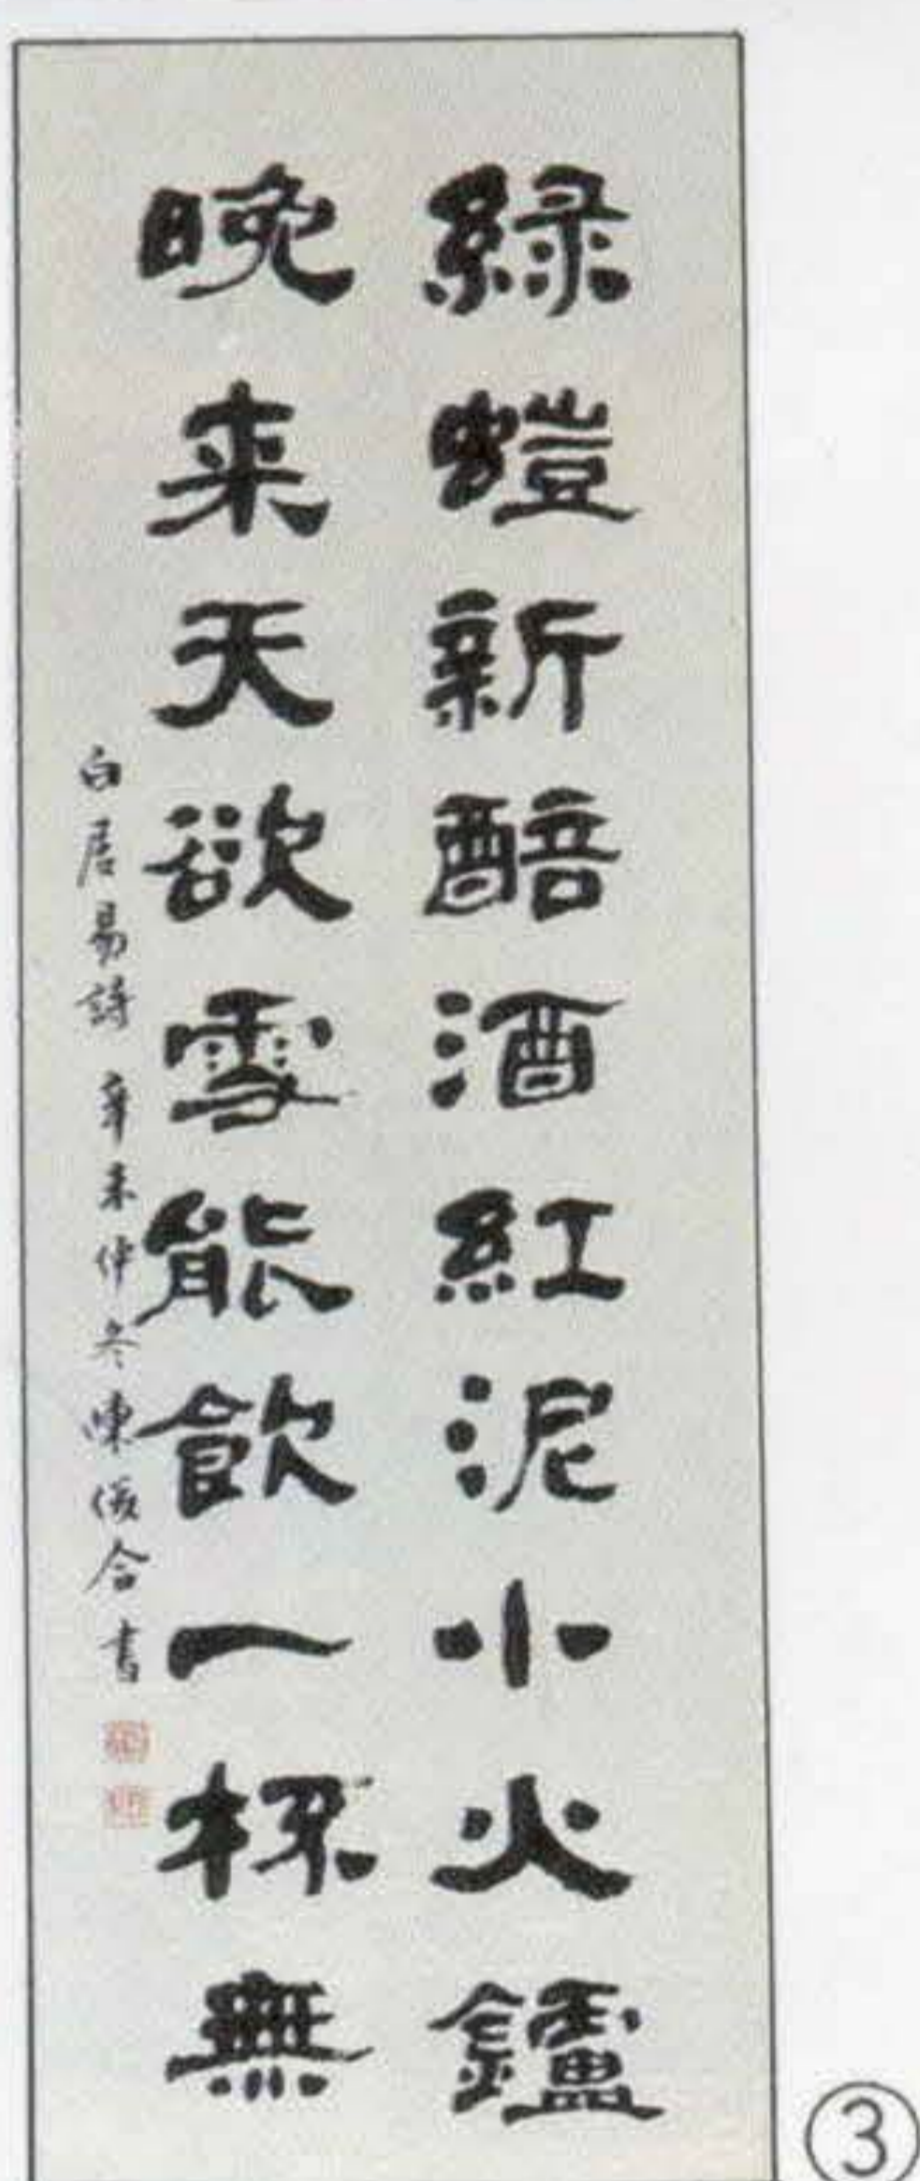 綠螘新醅酒紅泥小火鑪
晚来天欲雪能飲一杯無
白居易詩 辛未仲冬陳合書
③